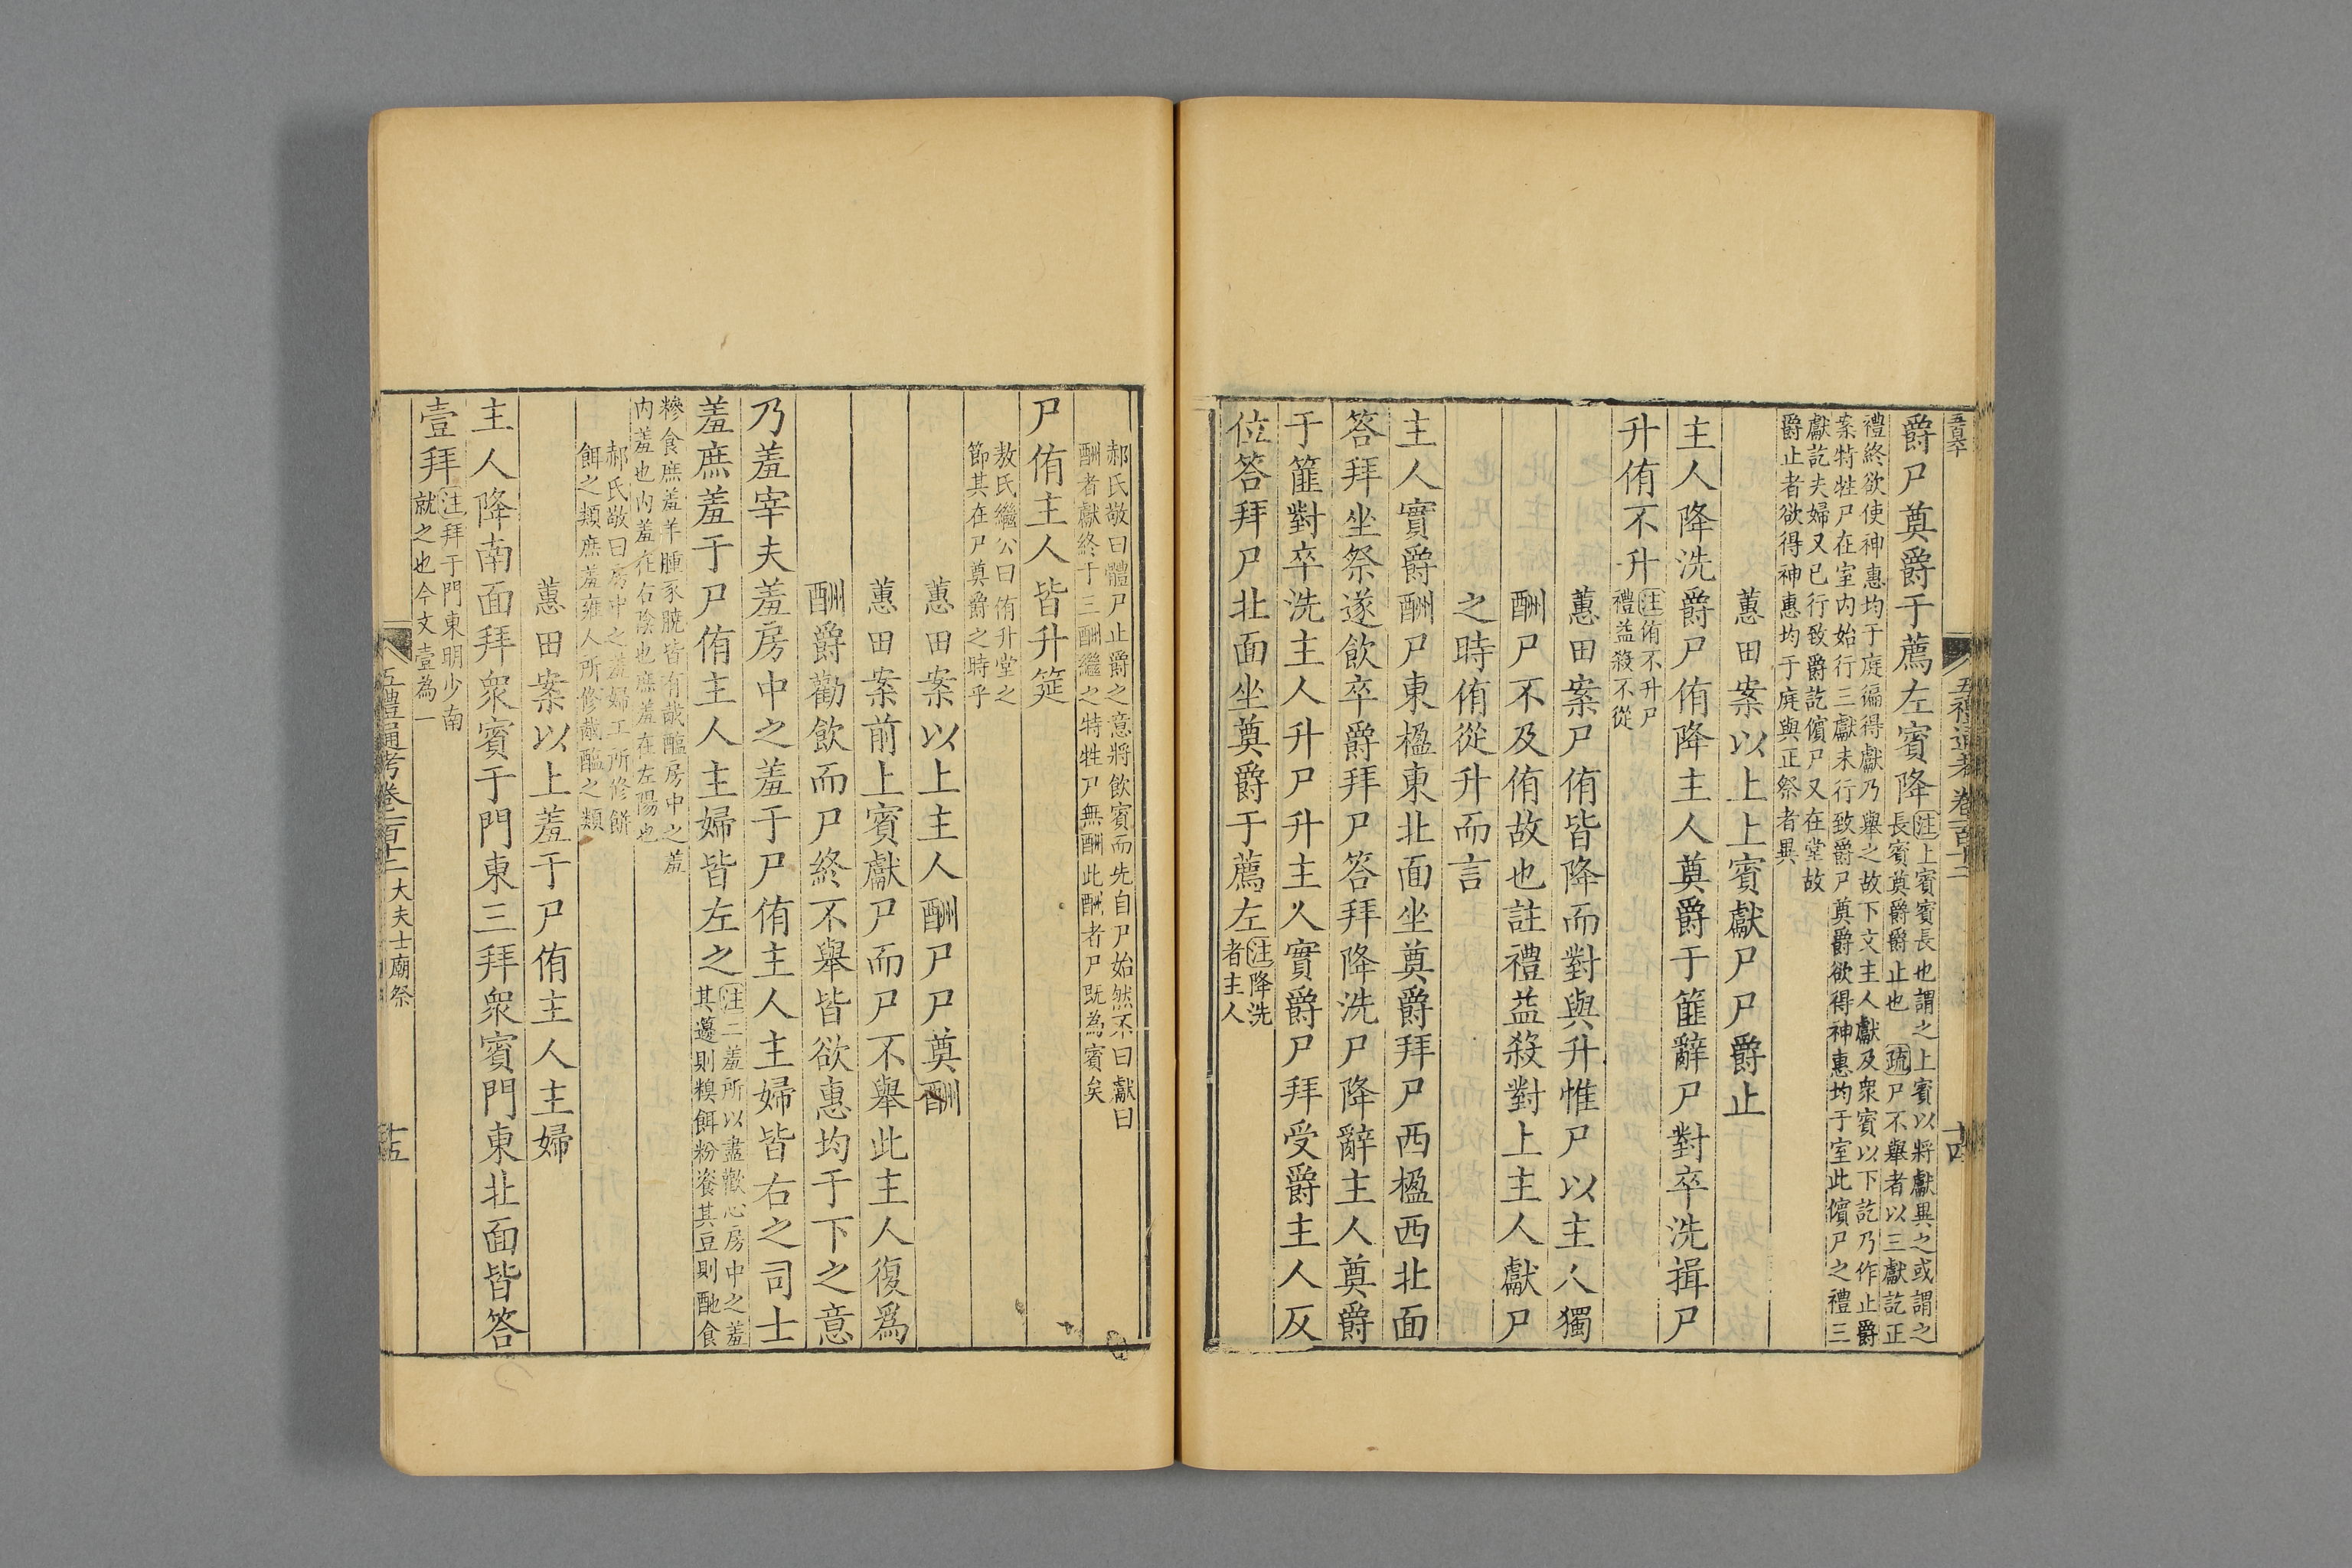 爵尸奠爵于薦左賓降注上賓賓長也謂之上賓以將獻異之或謂之
長賓奠爵爵止也 疏尸不舉者以三獻訖正
禮終欲使神惠均于庭徧得獻乃舉之故下文主人獻及衆賓以下訖乃作止爵
案特牲尸在室内始行三獻未行致爵尸奠爵欲得神惠均于室此儐尸之禮三
獻訖夫婦又已行致爵訖儐尸又在堂故
爵止者欲得神惠均于庭與正祭者異
蕙田案以上上賓獻尸尸爵止
主人降洗爵尸侑降主人奠爵于篚辭尸對卒洗揖尸
升侑不升注侑不升尸
禮益殺不從
蕙田案尸侑皆降而對與升惟尸以主人獨
酬尸不及侑故也註禮益殺對上主人獻尸
之時侑從升而言
主人實爵酬尸東楹東北面坐奠爵拜尸西楹西北面
答拜坐祭遂飲卒爵拜尸答拜降洗尸降辭主人奠爵
于篚對卒洗主人升尸升主人實爵尸拜受爵主人反
位答拜尸北面坐奠爵于薦左注降洗
者主人
五禮通考卷一百十二
十四
郝氏敬曰體尸止爵之意將飲賓而先自尸始然不曰獻曰
酬者獻終于三酬繼之特牲尸無酬此酬者尸既為賓矣
尸侑主人皆升筵
敖氏繼公曰侑升堂之
節其在尸奠爵之時乎
蕙田案以上主人酬尸尸奠酬
蕙田案前上賓獻尸而尸不舉此主人復爲
酬爵勸飲而尸終不舉皆欲惠均于下之意
乃羞宰夫羞房中之羞于尸侑主人主婦皆右之司士
羞庶羞于尸侑主人主婦皆左之注二羞所以盡歡心房中之羞
其籩則糗餌粉餈其豆則酏食
糝食庶羞羊臐豕膮皆有胾醢房中之羞
内羞也内羞在右陰也庶羞在左陽也
郝氏敬曰房中之羞婦工所修餅
餌之類庶羞雍人所修胾醢之類
蕙田案以上羞于尸侑主人主婦
主人降南面拜衆賓于門東三拜衆賓門東北面皆答
壹拜注拜于門東明少南
就之也今文壹為一
五禮通考卷一百十二 大夫士廟祭
十五